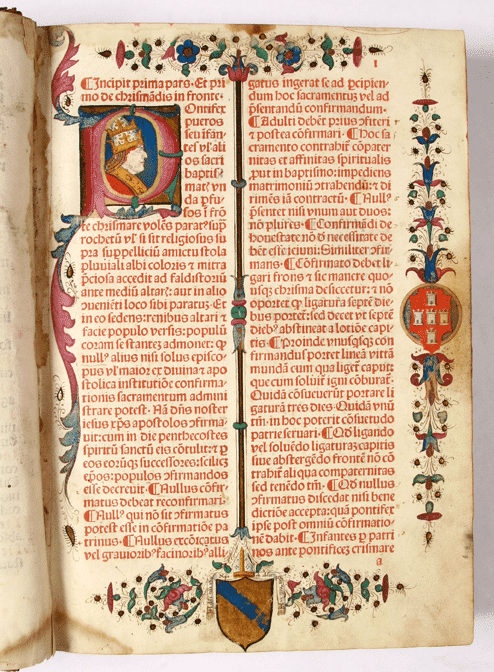 ¶Incipit prima pars. Et pri
mo de chrismādis in fronte.
Ontifex
pueros
seu ifan-
tes vl ali
os sacri
baptis-
mate vn
da pfu-
sos ī frō
te chrismare volēs parat⁹ sup
rochetū vl si sit religiosus su
pra suppelliciū amictu stola
pluuiali albi coloris & mitra
pciosa accedit ad faldistoriū
ante mediū altar⁊ aut in alio
cōueniēti loco sibi paratuz. Et
in eo sedens: renibus altari &
facie populo versis: populū
coram se stantez admonet: q
null⁹ alius nisi solus episco-
pus vl maior ex diuina & apo
stolica institutiōe confirma-
tionis sacramentum admini
strare potest. Nā dn̄s noster
iesus xp̄s apostolos ꝯfirma
uit: cum in die penthecostes
spiritū sanctū eis cōtulit: & p
eos eorūq; successores: scilicz
ep̄os: populos ꝯfirmandos
esse decreuit. ¶Nullus cōfir-
matus debeat reconfirmari.
¶Null⁹ qui nō sit ꝯfirmatus
potest esse in cōfirmatiōe pa
trinus. ¶Nullus excōicatus
vel grauiorib⁹ facinorib⁹ alli-
1
gatus ingerat se ad pcipien-
dum hoc sacramentuz vel ad
psentandū confirmandum.
¶Adulti debēt prius ꝯfiteri
& postea cōfirmari. ¶Hoc sa
cramento contrahit cōpater
nitas et affinitas spiritualis
put in baptismo: impediens
matrimoniū ꝯtrahendū: & di
rimēs iā contractū. ¶Null⁹
psentet nisi vnum aut duos:
nō plures. ¶Confirmādi de-
honestate nō d necessitate de
bēt esse ieiuni: Similiter ꝯfir-
mans. ¶Cōfirmato debet li-
gari frons & sic manere quo
usq; chrisma desiccetur: & nō
oportet q ligaturā septē die-
bus portet: sed decet vt septē
dieb⁹ abstineat a lotiōe capi-
tis. ¶Proinde vnusqsq; con
firmandus portet lineā vittā
mundā cum qua liget caput:
que cum soluit igni cōburat.
Quidā cōsueuerūt portare li
gaturā tres dies. Quidā vnū
tm̄. in hoc poterit cōsuetudo
patrie seruari. ¶Qd ligando
vel soluēdo ligaturaz capitis
siue abstergēdo frontē nō cō
trahit aliqua compaternitas
sed tenēdo tm̄. ¶Qd nullus
ꝯfirmatus discedat nisi bene
dictiōe accepta: quā pontifex
ipse post omniū cōfirmatio-
nē dabit. ¶Infantes p parri
nos ante pontificez crismare
a